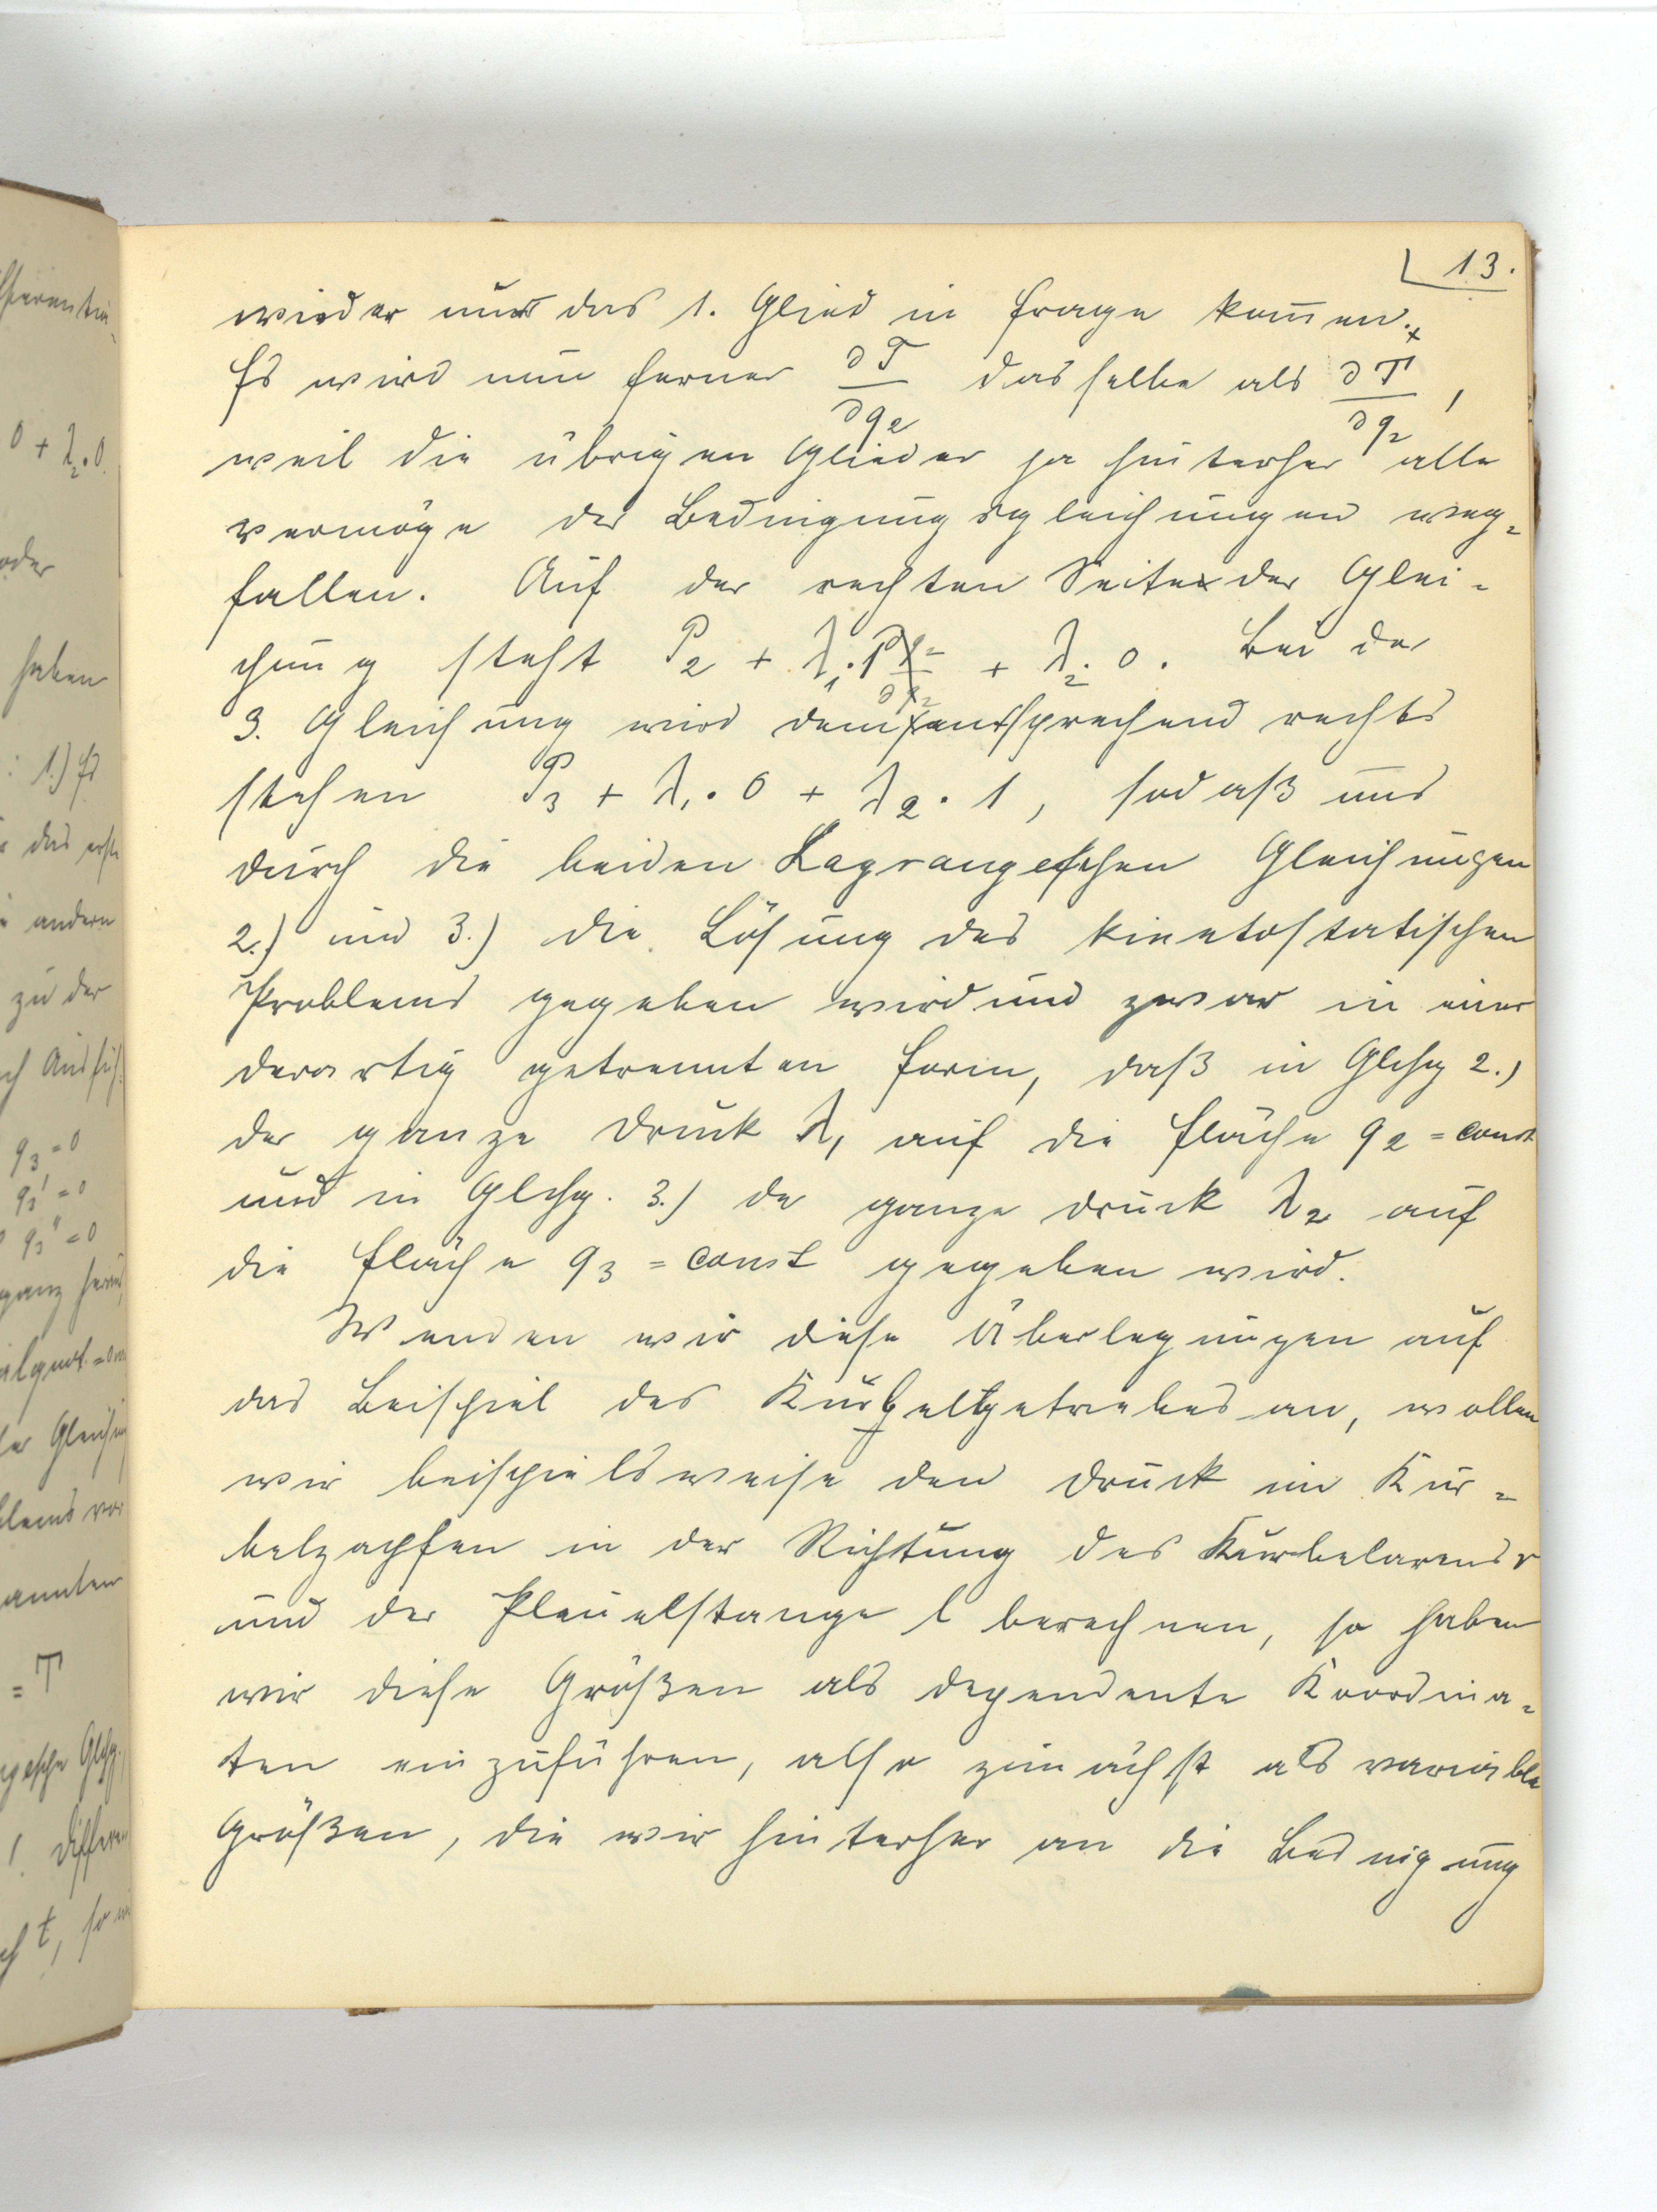 13.
wieder nur das 1. Glied in Frage kommen.
Es wird nun ferner ∂T/∂q₂ dasselbe als ∂T*/∂q₂,
weil die übrigen Glieder ja hinterher alle
vermöge der Bedingungsgleichungen weg-
fallen. Auf der rechten Seite der Glei-
chung steht P₂ + λ₁·1 + λ₂·0. Bei der
3. Gleichung wird dementsprechend rechts
stehen P₃ + λ₁·0 + λ₂·1, sodaß uns
durch die beiden Lagrangeschen Gleichungen
2.) und 3.) die Lösung des kinetostatischen
Problems gegeben wird und zwar in einer
derartig getrennten Form, daß in Glchg 2.)
der ganze Druck λ₁ auf die Fläche q₂ = const
und in Glchg. 3.) der ganze Druck λ₂ auf
die Fläche q₃ = const gegeben wird.
Wenden wir diese Überlegungen auf
das Beispiel des Kurbelgetriebes an, wollen
wir beispielsweise den Druck im Kur-
belzapfen in der Richtung des Kurbelarmes r
und der Pleuelstange l berechnen, so haben
wir diese Größen als dependente Koordina-
ten einzuführen, also zunächst als variable
Größen, die wir hinterher an die Bedingung
0 + λ₂·0.
oder
haben
: 1.) Es
das erste
andern
zu der
q₃ = 0
q₃' = 0
q₃'' = 0
ganz
= T
t, so